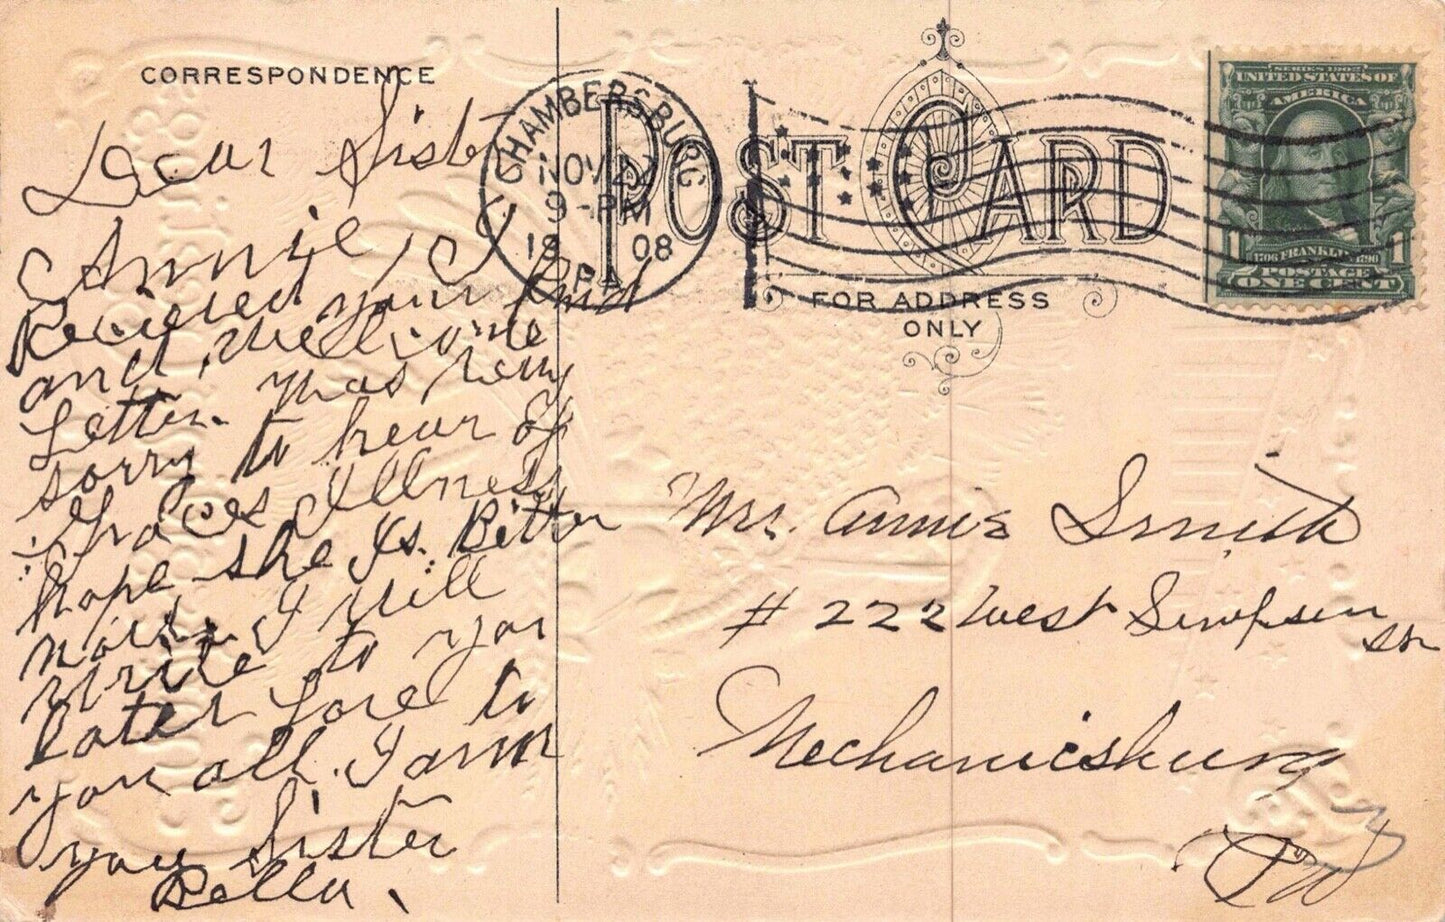 CORRESPONDENCE
Dear Sister
Annie, I
Recieved your kind
and welcome
Letter was very
sorry to hear of
Graces Illness
hope she Is Better
now I will
write to you
Later Love to
you all. I am
your Sister
Bella.
CHAMBERSBURG
NOV
9-PM
19 08
PA
POST CARD
FOR ADDRESS
ONLY
SERIES 1902
UNITED STATES OF
AMERICA
1 1706 FRANKLIN 1790 1
POSTAGE
ONE CENT
Mrs. Annie Smith
# 222 West Simpson
St
Mechanicsburg
Pa